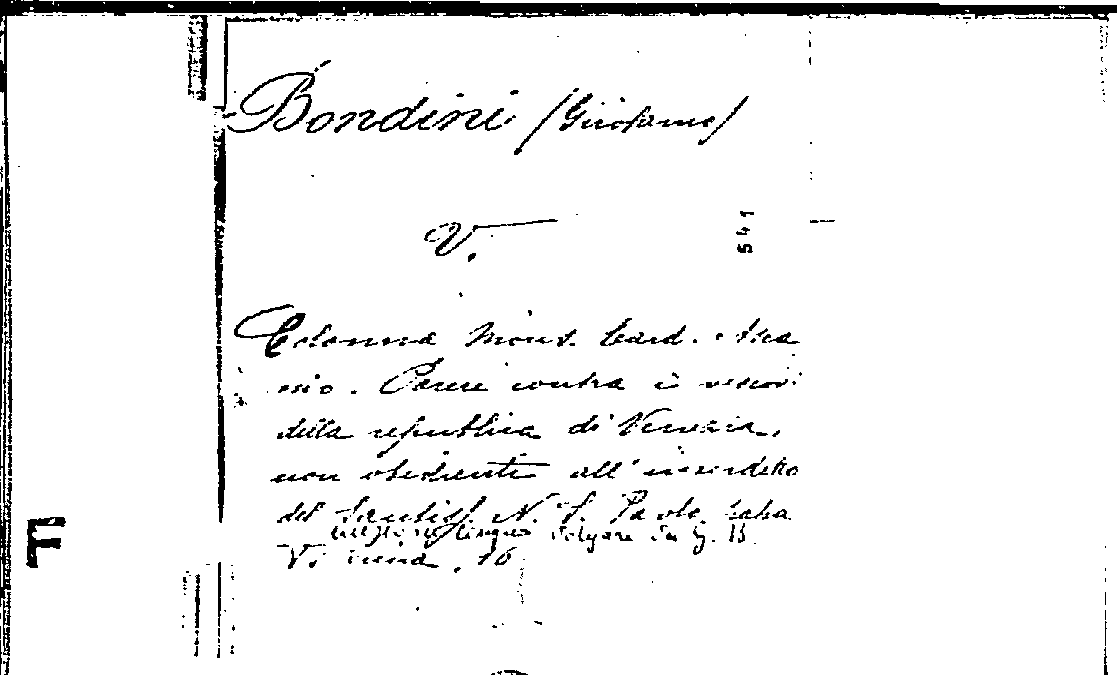 Bondini /Girolamo/
V.
541
Colonna Mons. Card. Asca
nio. Parere contra i vescovi
della republica di Venezia,
non obedienti all'interdetto
del Santiss. N. S. Paolo Papa
lingua volgare da G. B.
V. 16
F